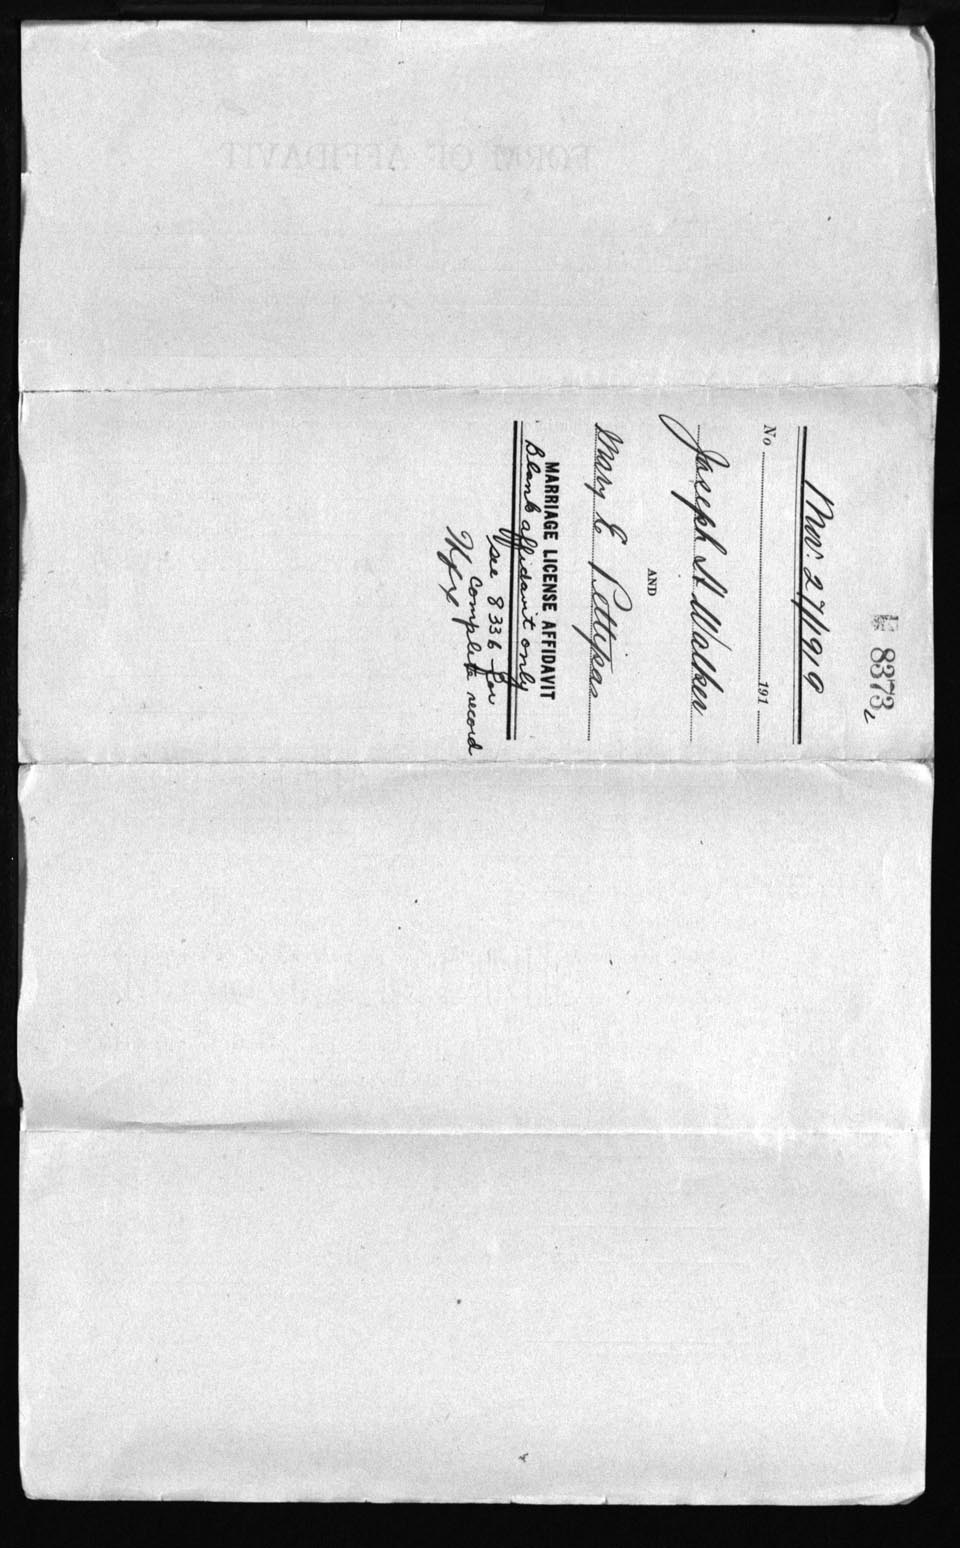 8373
Nov. 27/1919
No 191
Joseph A. Walker
AND
Mary E Pettipas
MARRIAGE LICENSE AFFIDAVIT
Blank affidavit only
see 8336 for
complete record
Hfx
FORM OF AFFIDAVIT